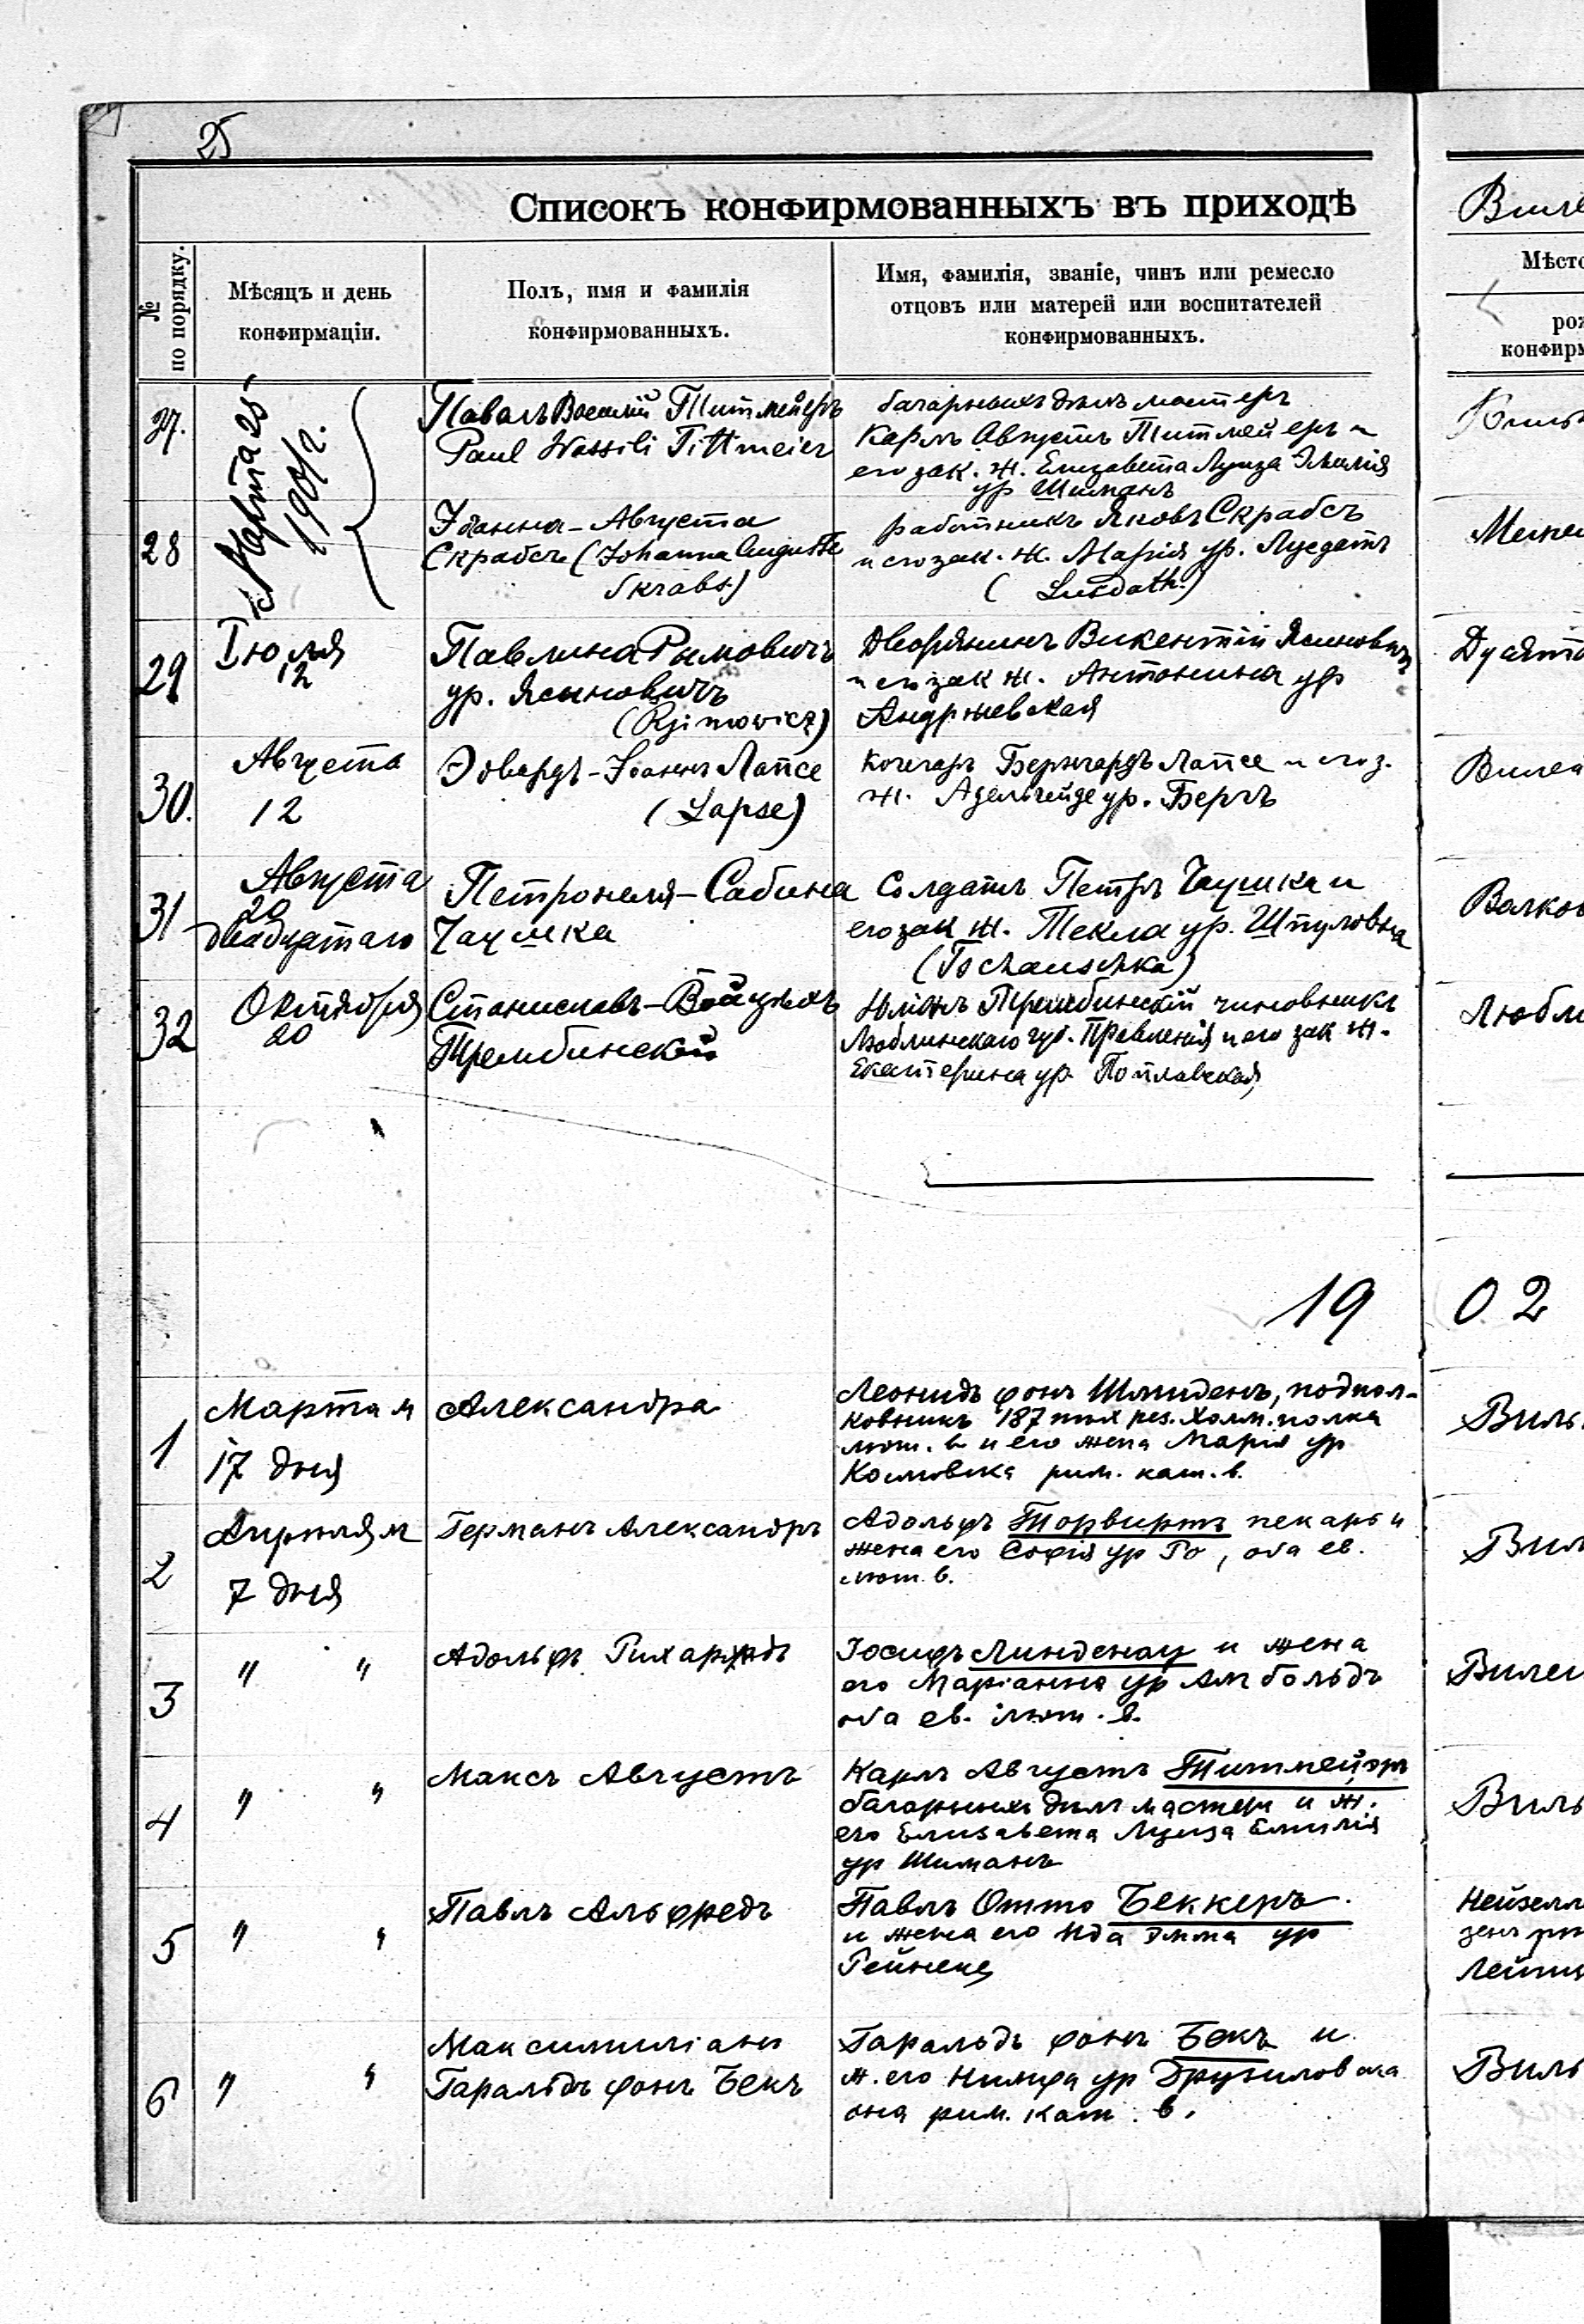 25
Списокъ конфирмованныхъ въ приходѣ
№ по порядку.
Мѣсяцъ и день
конфирмаціи.
Полъ, имя и фамилія
конфирмованныхъ.
Имя, фамилія, званіе, чинъ или ремесло
отцовъ или матерей или воспитателей
конфирмованныхъ.
Мѣсто
рож
конфирм
27.
Марта 25
1901 г.
Павелъ Василій Титмейеръ
Paul Wassili Tittmeier
багарныхъ дѣлъ мастеръ
Карлъ Августъ Титмейеръ и
его зак. ж. Елизавета Луиза Эмилія
ур Шиманъ
28
Іоанна-Августа
Скрабсъ (Johanna Auguste
Skrabs.)
работникъ Яковъ Скрабсъ
и его зак. ж. Марія ур. Лусдатъ
(Lusdath.)
Мит
29
Іюля
12
Павлина Рымовичъ
ур. Ясиновичъ
(Rjimowicz)
Дворянинъ Викентій Ясиновичъ
и его зак ж. Антонина ур
Андржевская
Дусят
30.
Августа
12
Эдвардъ-Іоаннъ Лапсе
(Lapse)
Кочегаръ Бернгардъ Лапсе и его з.
ж. Адельгейде ур. Бергъ
Вилен
31
Августа
20
двадцатаго
Петронеля-Сабина
Чаушка
Солдатъ Петръ Чаушка и
его зак ж. Текла ур. Шпуловна
(Tschauschka)
Волков
32
Октября
20
Станиславъ-Войцѣхъ
Трембинскій
Юліанъ Трембинскій чиновникъ
Люблинскаго губ. Правленія и его зак ж.
Екатерина ур. Поплавская,
Любли
19 02
1
Марта м
17 дня
Александра
Леонидъ фонъ Шлиденъ, подпол-
ковникъ 187 пѣх рез. Холм. полка
лют. в. и его жена Марія ур
Козловска рим. кат. в.
Виль
2
Апрѣля м
7 дня
Германъ Александръ
Адольфъ Торвиртъ пекарь и
жена его Софія ур Го, оба ев.
лют. в.
Вил
3
" "
Адольфъ Рихардъ
Іосифъ Линденау и жена
его Маріанна ур Амбольдъ
оба ев. лют. в.
Вилен
4
" "
Максъ Августъ
Карлъ Августъ Титмейеръ
багарныхъ дѣлъ мастеръ и ж.
его Елизавета Луиза Емилія
ур Шиманъ
Виль
5
" "
Павлъ Альфредъ
Павлъ Отто Беккеръ
и жена его Ида Эмма ур
Рейнеке
Нейзелл
зенъ
Лейпц
6
" "
Максимиліанъ
Гаральдъ фонъ Бекъ
Гаральдъ фонъ Бекъ и
ж. его Нимфа ур Друниловска
она рим. кат. в.
Виль